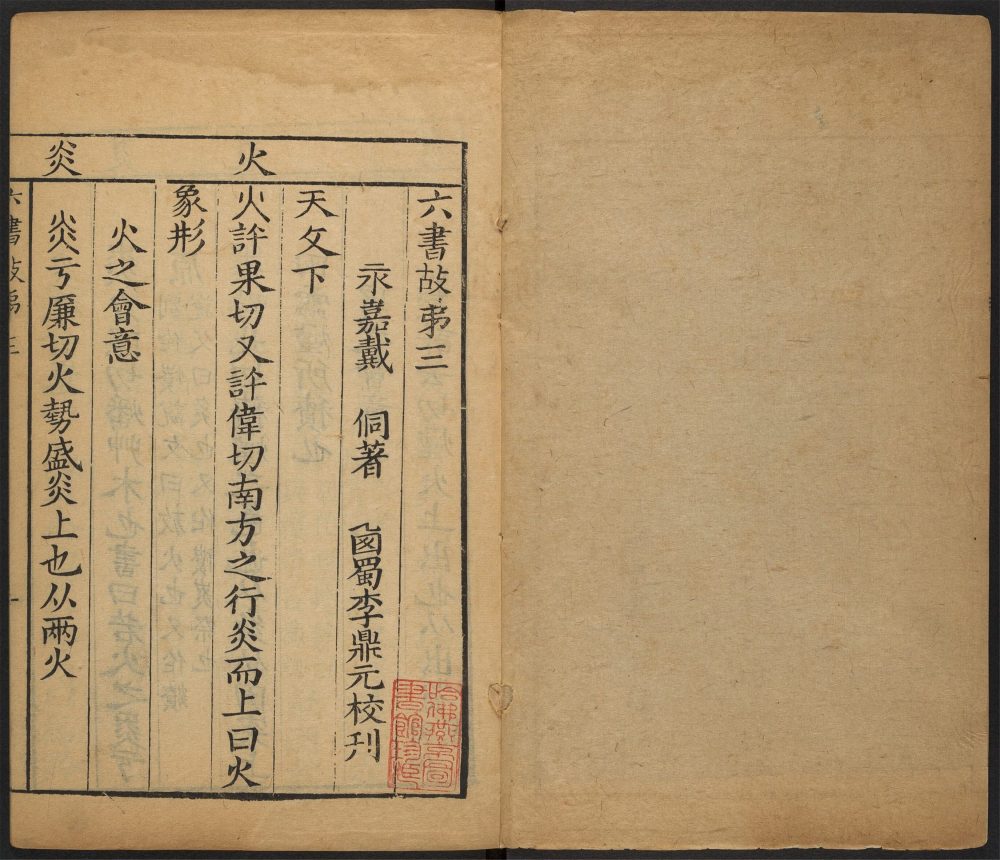 火　炎
六書故弟三
永嘉戴　侗著　㢴蜀李鼎元校刊
天文下
火許果切又許偉切南方之行炎而上曰火
象形
火之會意
炎亏廉切火勢盛炎上也从两火
六書故弟三
一
哈佛燕京圖書館珍藏